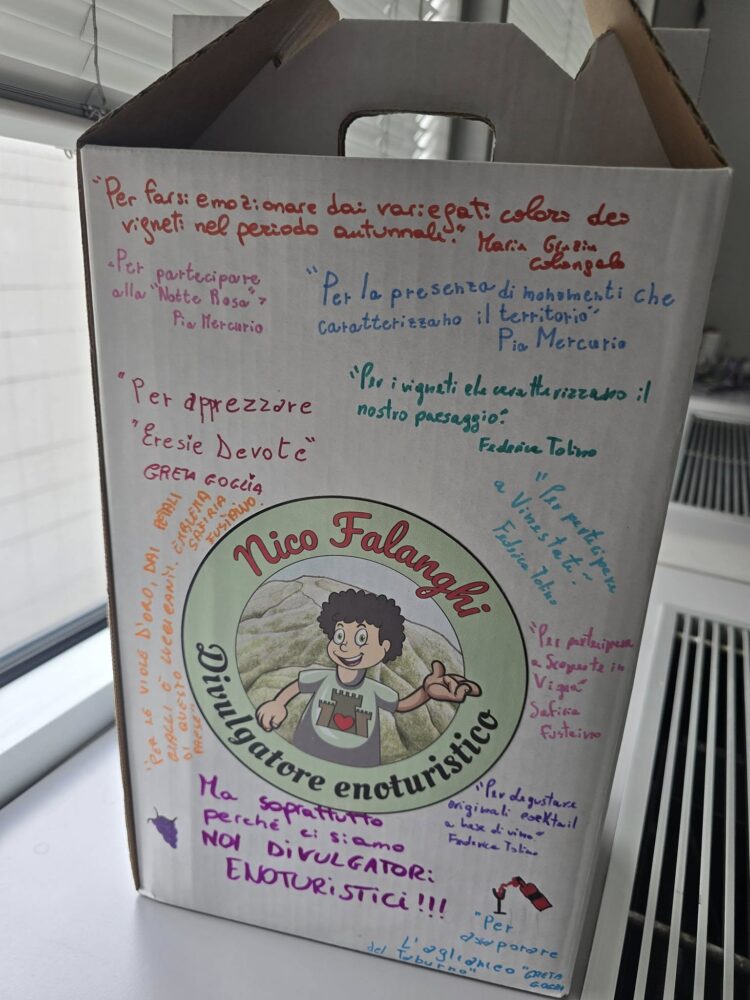 "Per farsi emozionare dai variegati colori dei
vigneti nel periodo autunnale." Maria Grazia
Colangelo
"Per partecipare
alla "Notte Rosa"
Pia Mercurio
"Per la presenza di monumenti che
caratterizzano il territorio"
Pia Mercurio
"Per apprezzare
"Eresie Devote"
GRETA GOGLIA
"Per i vigneti che caratterizzano il
nostro paesaggio."
Federica Tolino
"Per partecipare
a Vinestate."
Federica Tolino
"PER LE VIOLE D'ORO, DAI PETALI
GIALLI E LUCCICANTI, EMBLEMA
DI QUESTO
PAESE"
SAFIRIA
FUSTAINO.
Nico Falanghi
Divulgatore enoturistico
"Per partecipare
a Scoperte in
Vigna"
Safiria
Fustaino
"Per degustare
originali cocktail
a base di vino"
Federica Tolino
Ma soprattutto
perché ci siamo
NOI DIVULGATORI
ENOTURISTICI!!!
"Per
assaporare
L'aglianico
del Taburno"
GRETA
GOGLIA